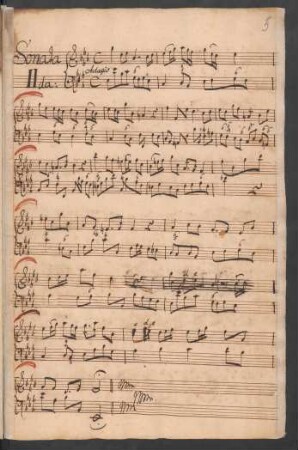 5
Sonata
Adagio
IIda: